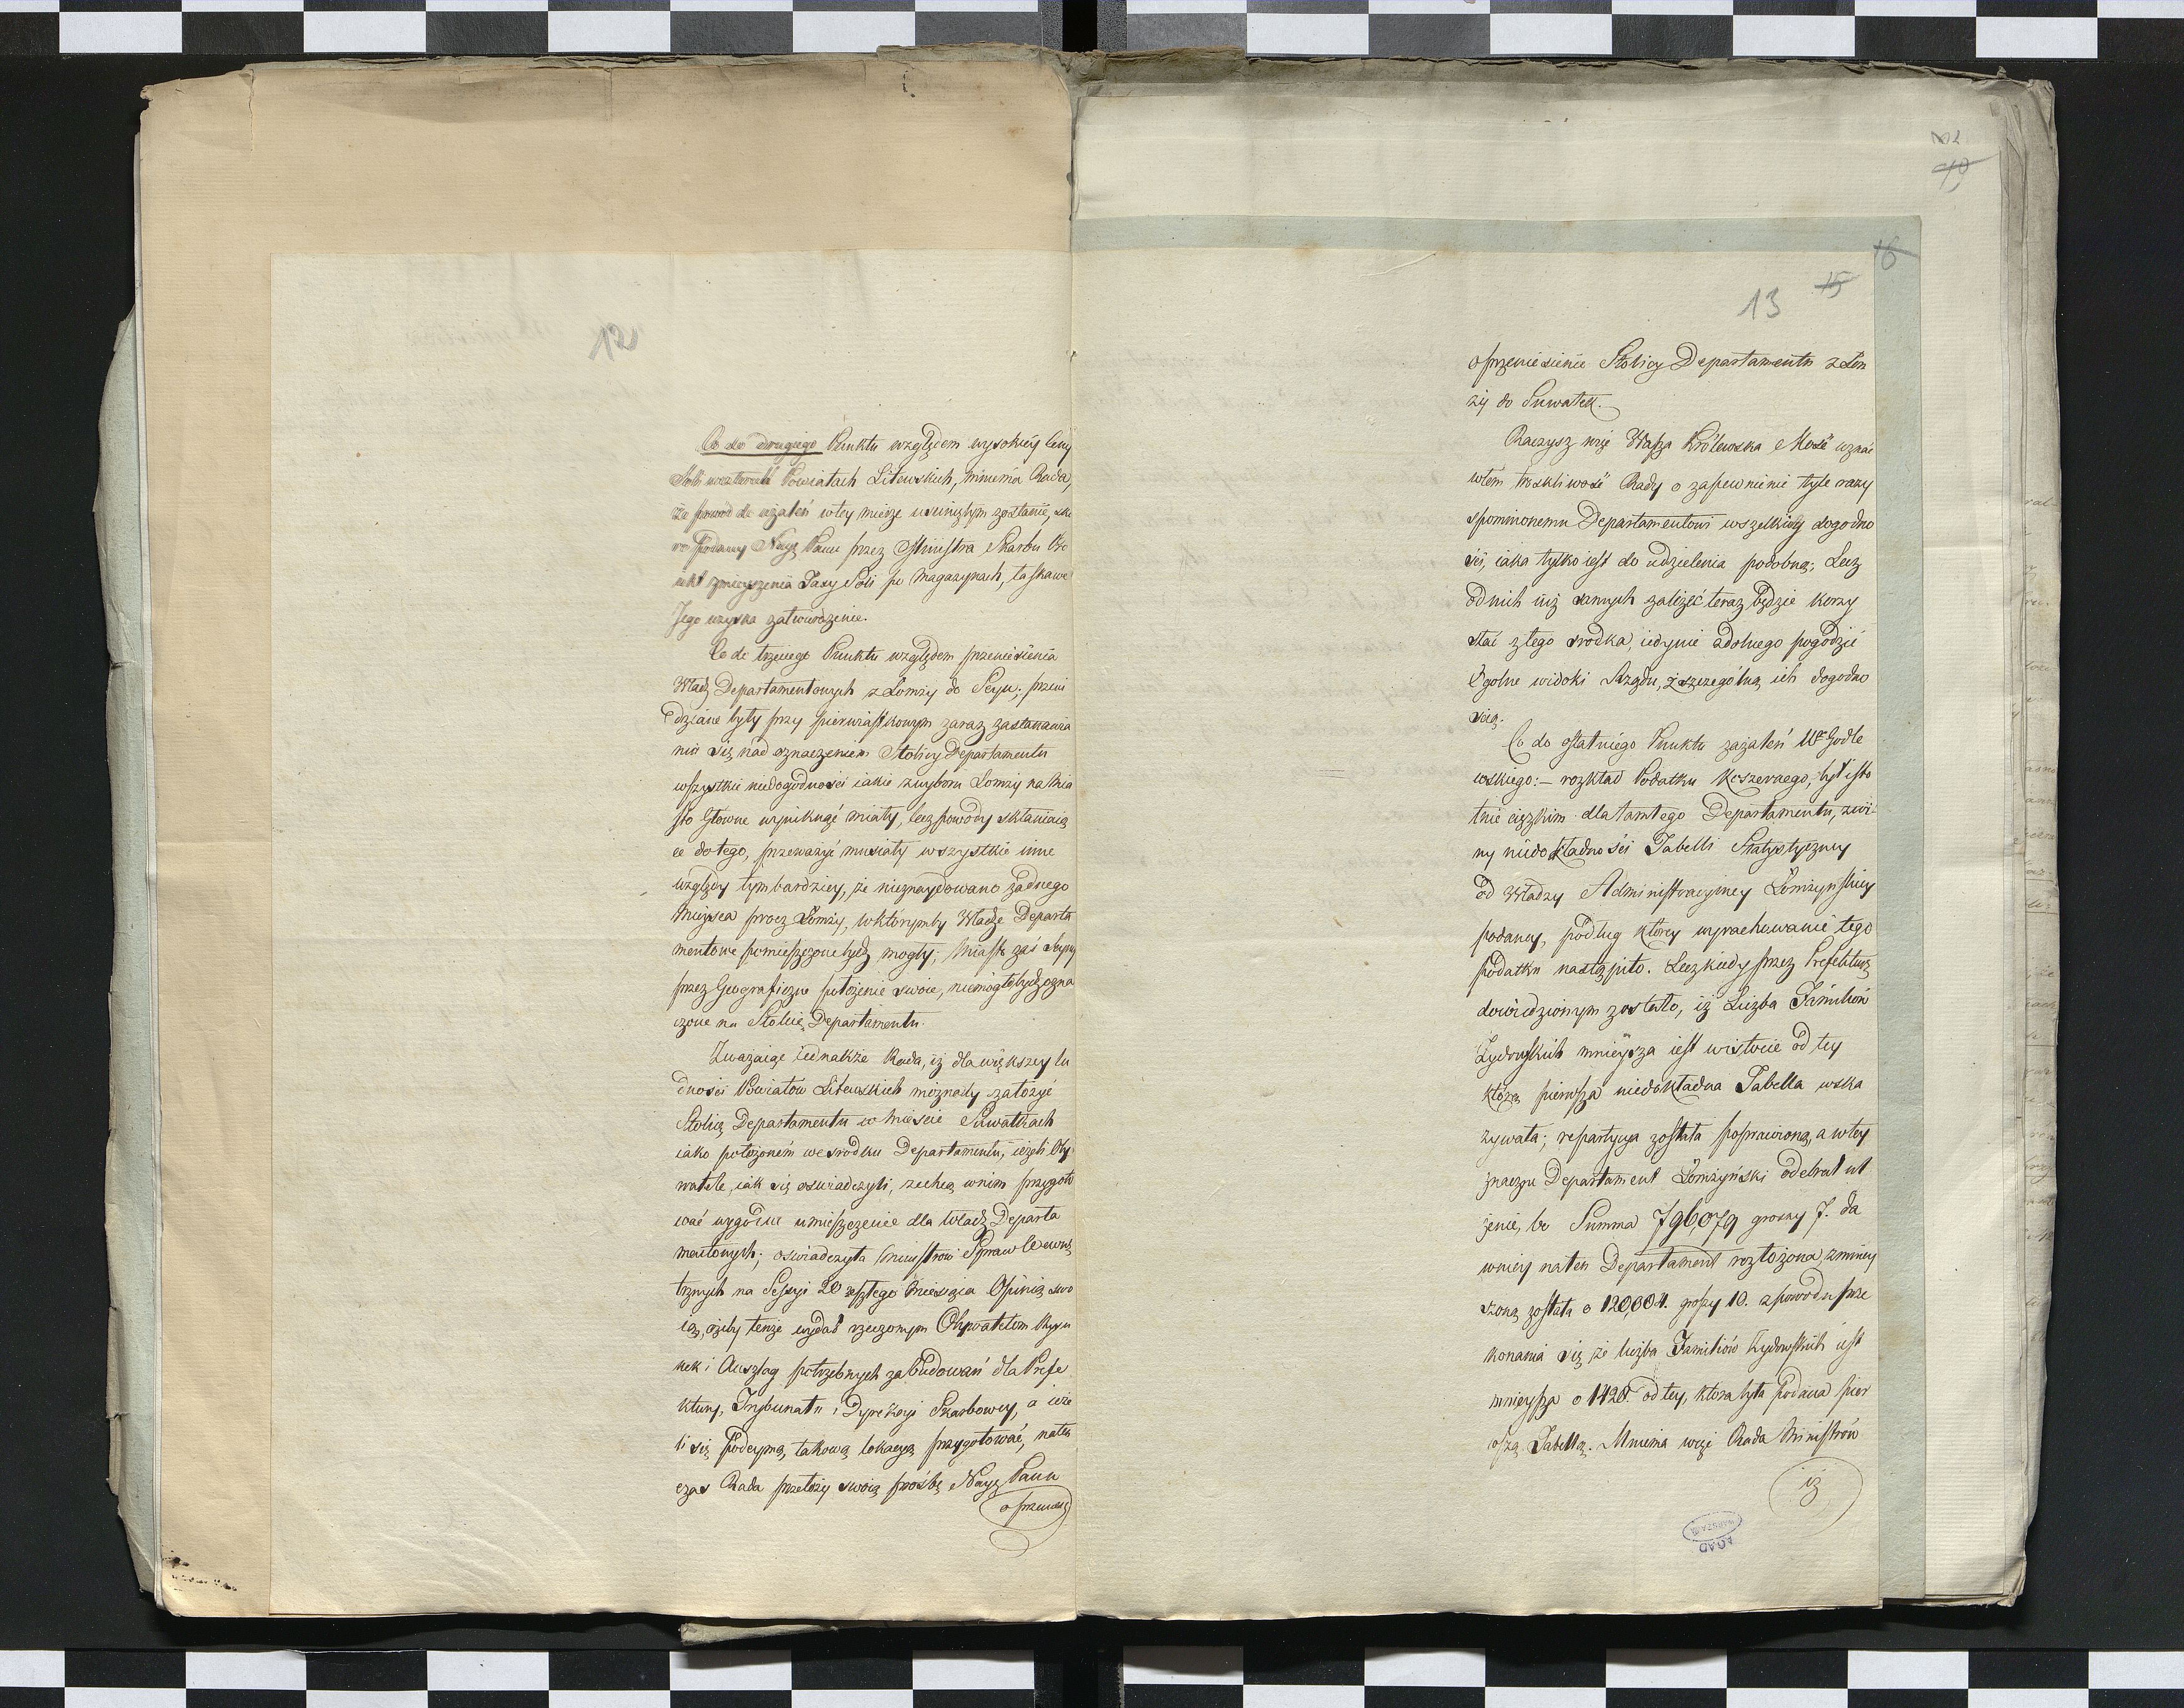 12
Co do drugiego Punktu względem wysokiey Ceny
Soli w czterech Powiatach Litewskich, mniema Rada,
że powod do użaleń w tey mierze usuniętym zostanie, sko
ro podany Nayj. Panu przez Ministra Skarbu Pro
iekt zmnieyszenia Taxy Soli po Magazynach, łaskawe
Jego uzyska zatwierdzenie.
Co do trzeciego Punktu względem przeniesienia
Władz Departamentowych z Łomży do Seyn; przewi
dziane były przy pierwiastkowym zaraz zastanawia
niu się nad oznaczeniem Stolicy Departamentu
wszystkie niedogodności iakie z wyboru Łomży na Mia
sto Głowne wyniknąć miały, lecz powody skłaniaią
ce do tego, przeważyć musiały wszystkie inne
względy tym bardziey, że nieznaydowano żadnego
Mieysca procz Łomży, w którymby Władze Departa
mentowe pomieszczone bydź mogły; Miasto zaś Seyny
przez Geograficzne położenie swoie, niemogło bydź ozna
czone na Stolicę Departamentu.
Zważaiąc iednakże Rada, iż dla większey lu
dności Powiatów Litewskich możnaby założyć
Stolicę Departamentu w Mieście Suwałkach
iako położoném we srodku Departamentu, ieżeli Oby
watele, iak się oswiadczyli, zechcą w nim przygoto
wać wygodne umieszczenie dla Władz Departa
mentowych; oświadczyła Ministrowi Spraw Wewnę
trznych na Sessyi 20 zeszłego Miesiąca Opinią swo
ią, ażeby tenże wydał rzeczonym Obywatelom Rysu
nek i Anszlag potrzebnych zabudowań dla Prefe
ktury, Trybunału i Dyrekcyi Skarbowey, a ieże
li się podeymą takową lokacyą przygotować, naten
czas Rada przełoży swoią prośbę Nayj. Panu
o przenie
12
13
15
16
o przeniesienie Stolicy Departamentu z Łom
ży do Suwałek.
Raczysz więc Wasza Królewska Mość uznać
w tém troskliwość Rady o zapewnienie tyle razy
spomnionemu Departamentowi wszelkiey dogodno
ści, iaka tylko iest do udzielenia podobną; Lecz
od nich iuż samych zależeć teraz będzie korzy
stać z tego srodka, iedynie zdolnego pogodzić
Ogolne widoki Rządu, z szczególną ich dogodno
scią.
Co do ostatniego Punktu zażaleń Wgo Godle
wskiego: – rozkład Podatku Koszernego, był isto
tnie ciężkim dla tamtego Departamentu, z wi
ny niedokładności Tabelli Statystyczney
od Władzy Administracyiney Łomżyńskiey
podaney, podług którey wyrachowanie tego
podatku nastąpiło. Lecz kiedy przez Prefekturę
dowiedzionym zostało, iż Liczba Familiów
Żydowskich mnieysza iest w istocie od tey
którą pierwsza niedokładna Tabella wska
zywała; repartycya została poprawioną, a w tey
znaczne Departament Łomżyński odebrał ul
żenie, bo Summa 796,079 groszy 7. da
wniey na ten Departament rozłożona, zmniey
szoną została o 120,004. groszy 10. z powodu prze
konania się że liczba Familiów Żydowskich iest
mnieysza o 1428. od tey, która była podana pier
wszą Tabellą. Mniema więc Rada Ministrów
iż
AGAD
WARSZAWA